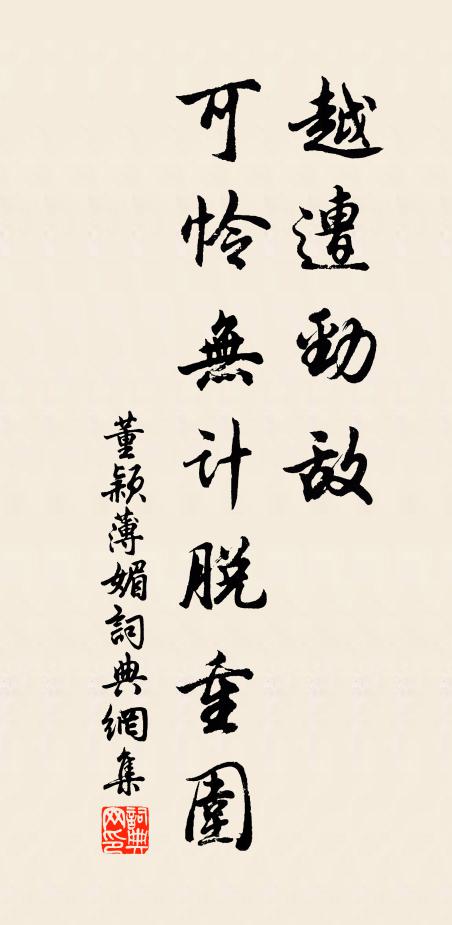 越遭勁敌
可怜無计脱重圍
董颖薄媚詞典網集
詞典网印